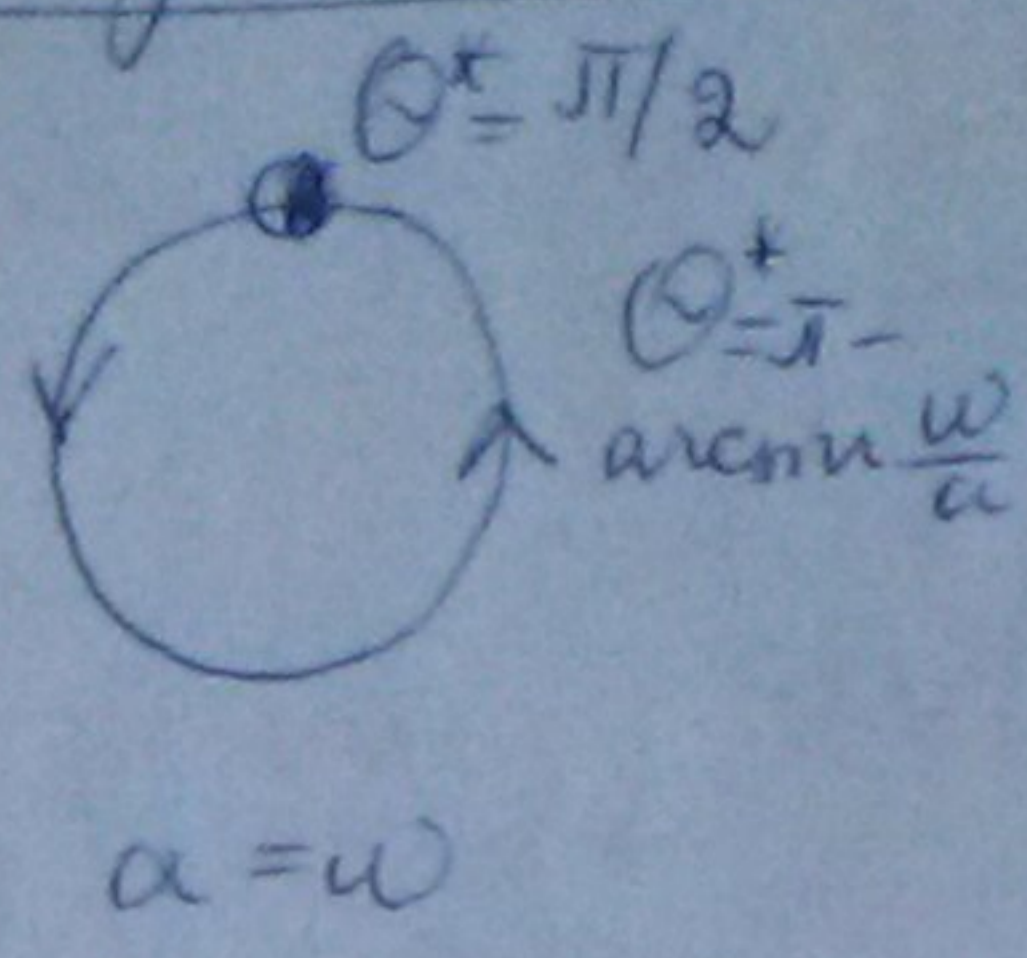 θ* = π/2
θ* = π -
arcsin ω/a
a = ω